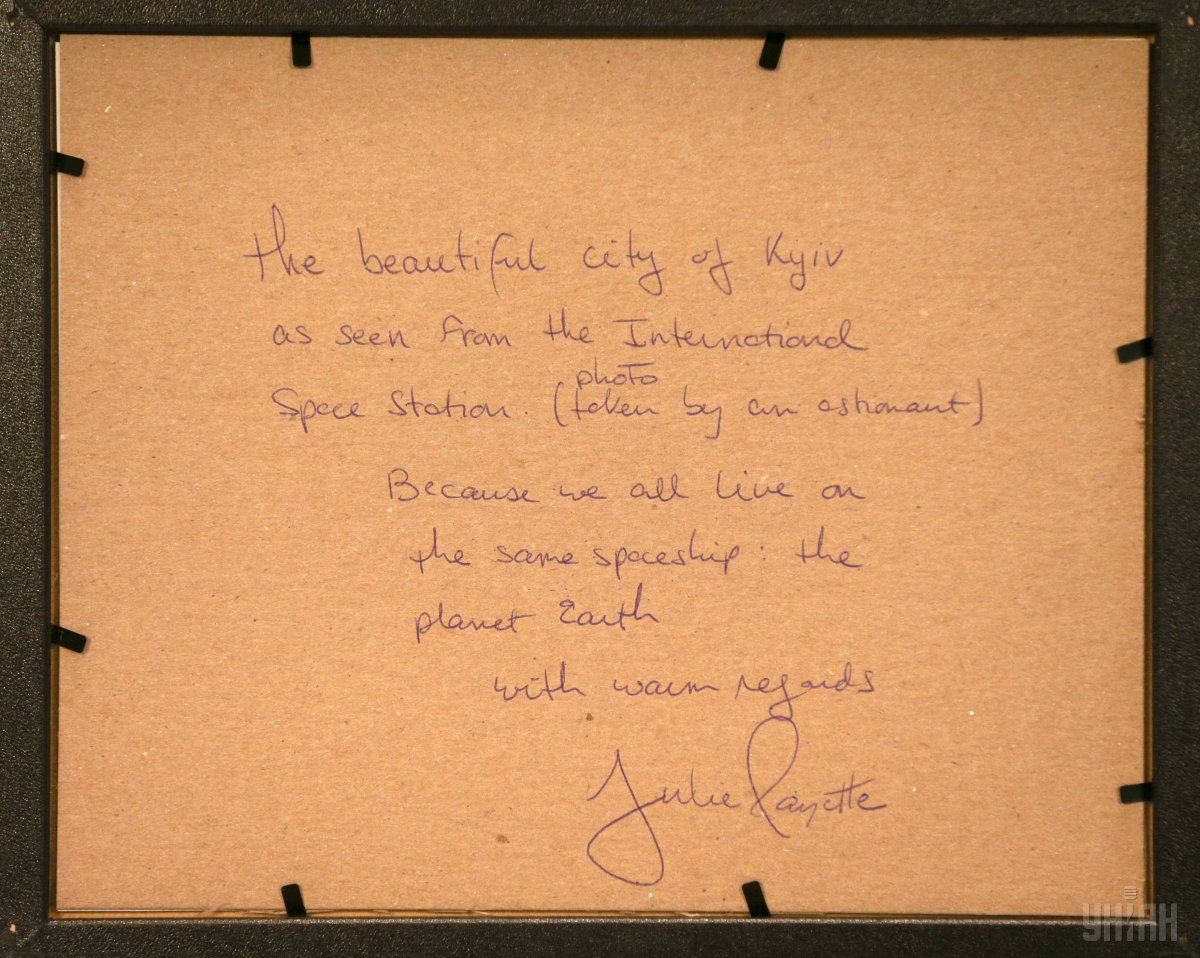 the beautiful city of Kyiv
as seen from the International
photo
Space Station. (taken by an astronaut)
Because we all live on
the same spaceship: the
planet Earth
with warm regards
Julie Payette
УНІАН